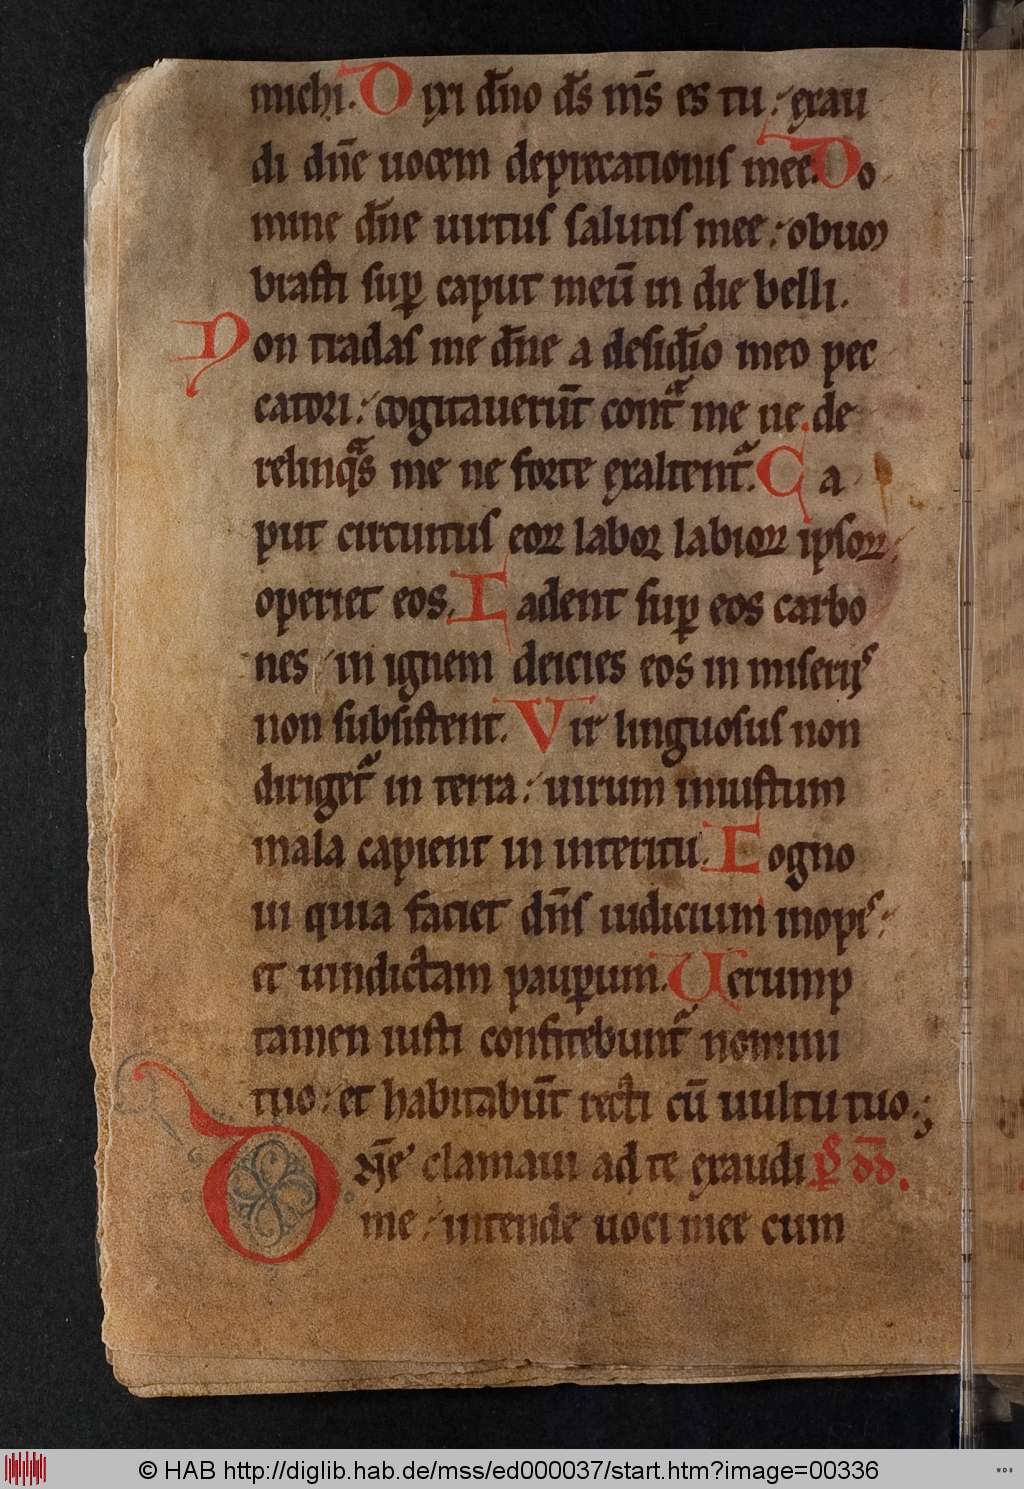 michi. Dixi dn̄o ds̄ ms̄ es tu: exau
di dn̄e uocem deprecationis mee. Do
mine dn̄e uirtus salutis mee: obum
brasti sup̲ caput meū in die belli.
Non tradas me dn̄e a desid̄io meo pec
catori: cogitauerūt contᵃ me ne de
relinqᵃs me ne forte exaltentᷣ. Ca
put circuitus eoꝝ labor labioꝝ ipsoꝝ
operiet eos. Cadent sup̲ eos carbo
nes in ignem deicies eos in miseriis
non subsistent. Vir linguosus non
dirigetᷣ in terra: uirum iniustum
mala capient in interitu. Cogno
ui quia faciet dn̄s iudicium inopis:
et uindictam paup̲um. Uerump
tamen iusti confitebuntᷣ nomini
tuo: et habitabūt recti cū uultu tuo.
Dn̄e clamaui ad te exaudi ps̄ dd̄.
me: intende uoci mee cum
© HAB http://diglib.hab.de/mss/ed000037/start.htm?image=00336